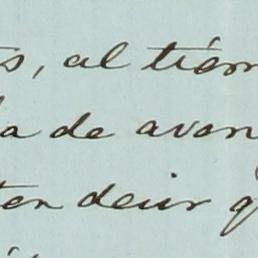 s, al tiém
a de avan
ten deur q